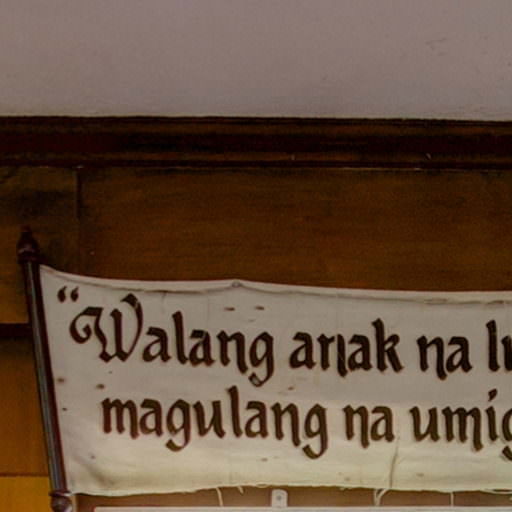 “Walang anak na
magulang na